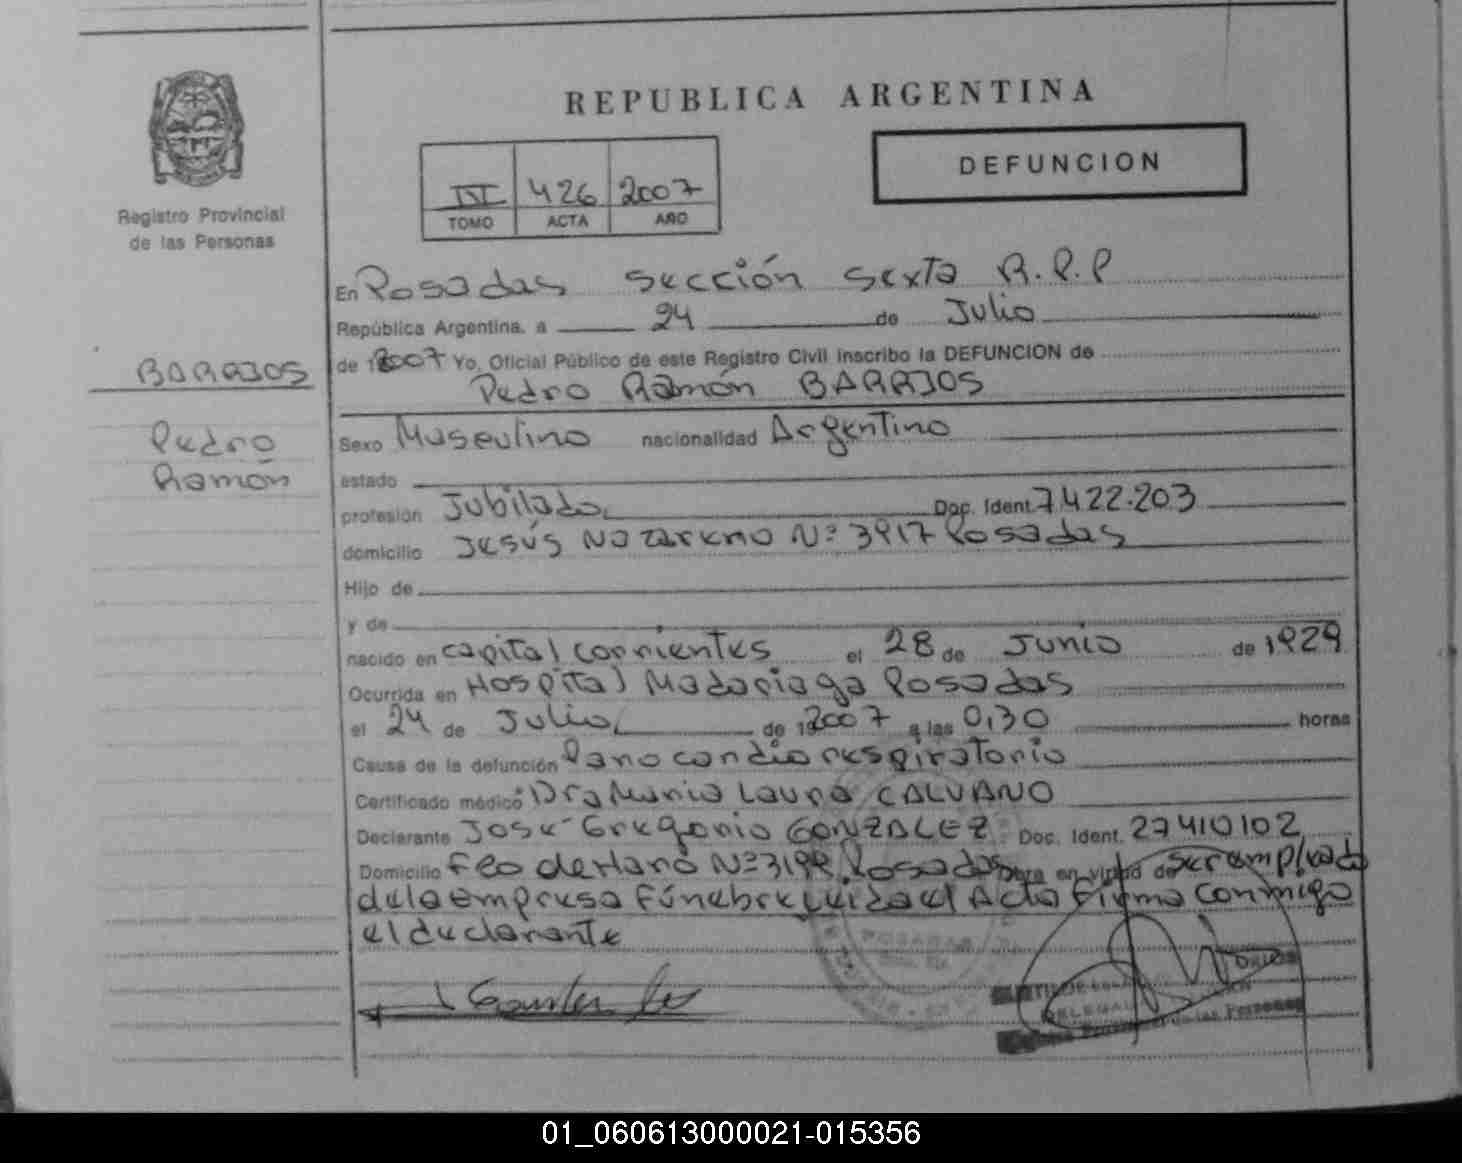 REPUBLICA ARGENTINA
DEFUNCION
III 426 2007
TOMO ACTA AÑO
Registro Provincial
de las Personas
En Posadas Sección Sexta R.P.P
República Argentina, a 24 de Julio
de 2007 Yo, Oficial Público de este Registro Civil inscribo la DEFUNCION de
Pedro Ramón BARRIOS
BARRIOS
Pedro
Ramón
Sexo Masculino nacionalidad Argentino
estado
profesión Jubilado Doc. Ident. 7.422.203
domicilio Jesús Nazareno Nº 3917 Posadas
Hijo de
y de
nacido en capital corrientes el 28 de Junio de 1929
Ocurrida en Hospital Madariaga Posadas
el 24 de Julio de 2007 a las 0,30 horas
Causa de la defunción Paro cardio respiratorio
Certificado médico Dra Maria Laura CALVANO
Declarante José Gregorio GONZALEZ Doc. Ident. 27410102
Domicilio Fco de Haro Nº Posadas Obra en virtud de ser empleado
de la empresa Fúnebre Leída el Acta Firma Conmigo
el declarante
POSADAS
01_060613000021-015356